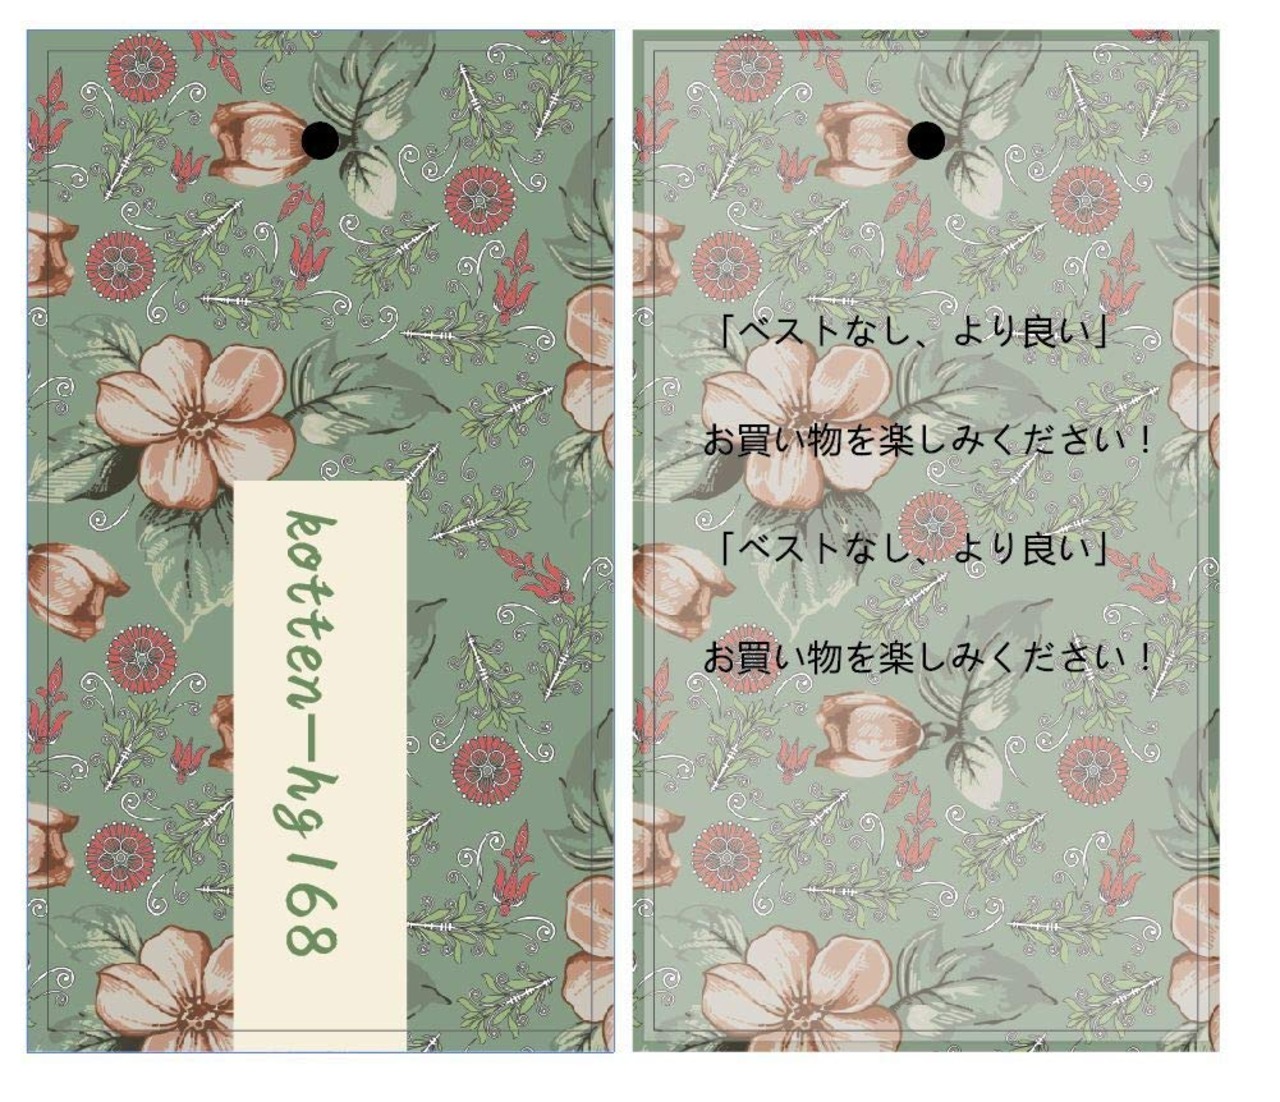 kotten-hg168
「ベストなし、より良い」
お買い物を楽しみください！
「ベストなし、より良い」
お買い物を楽しみください！